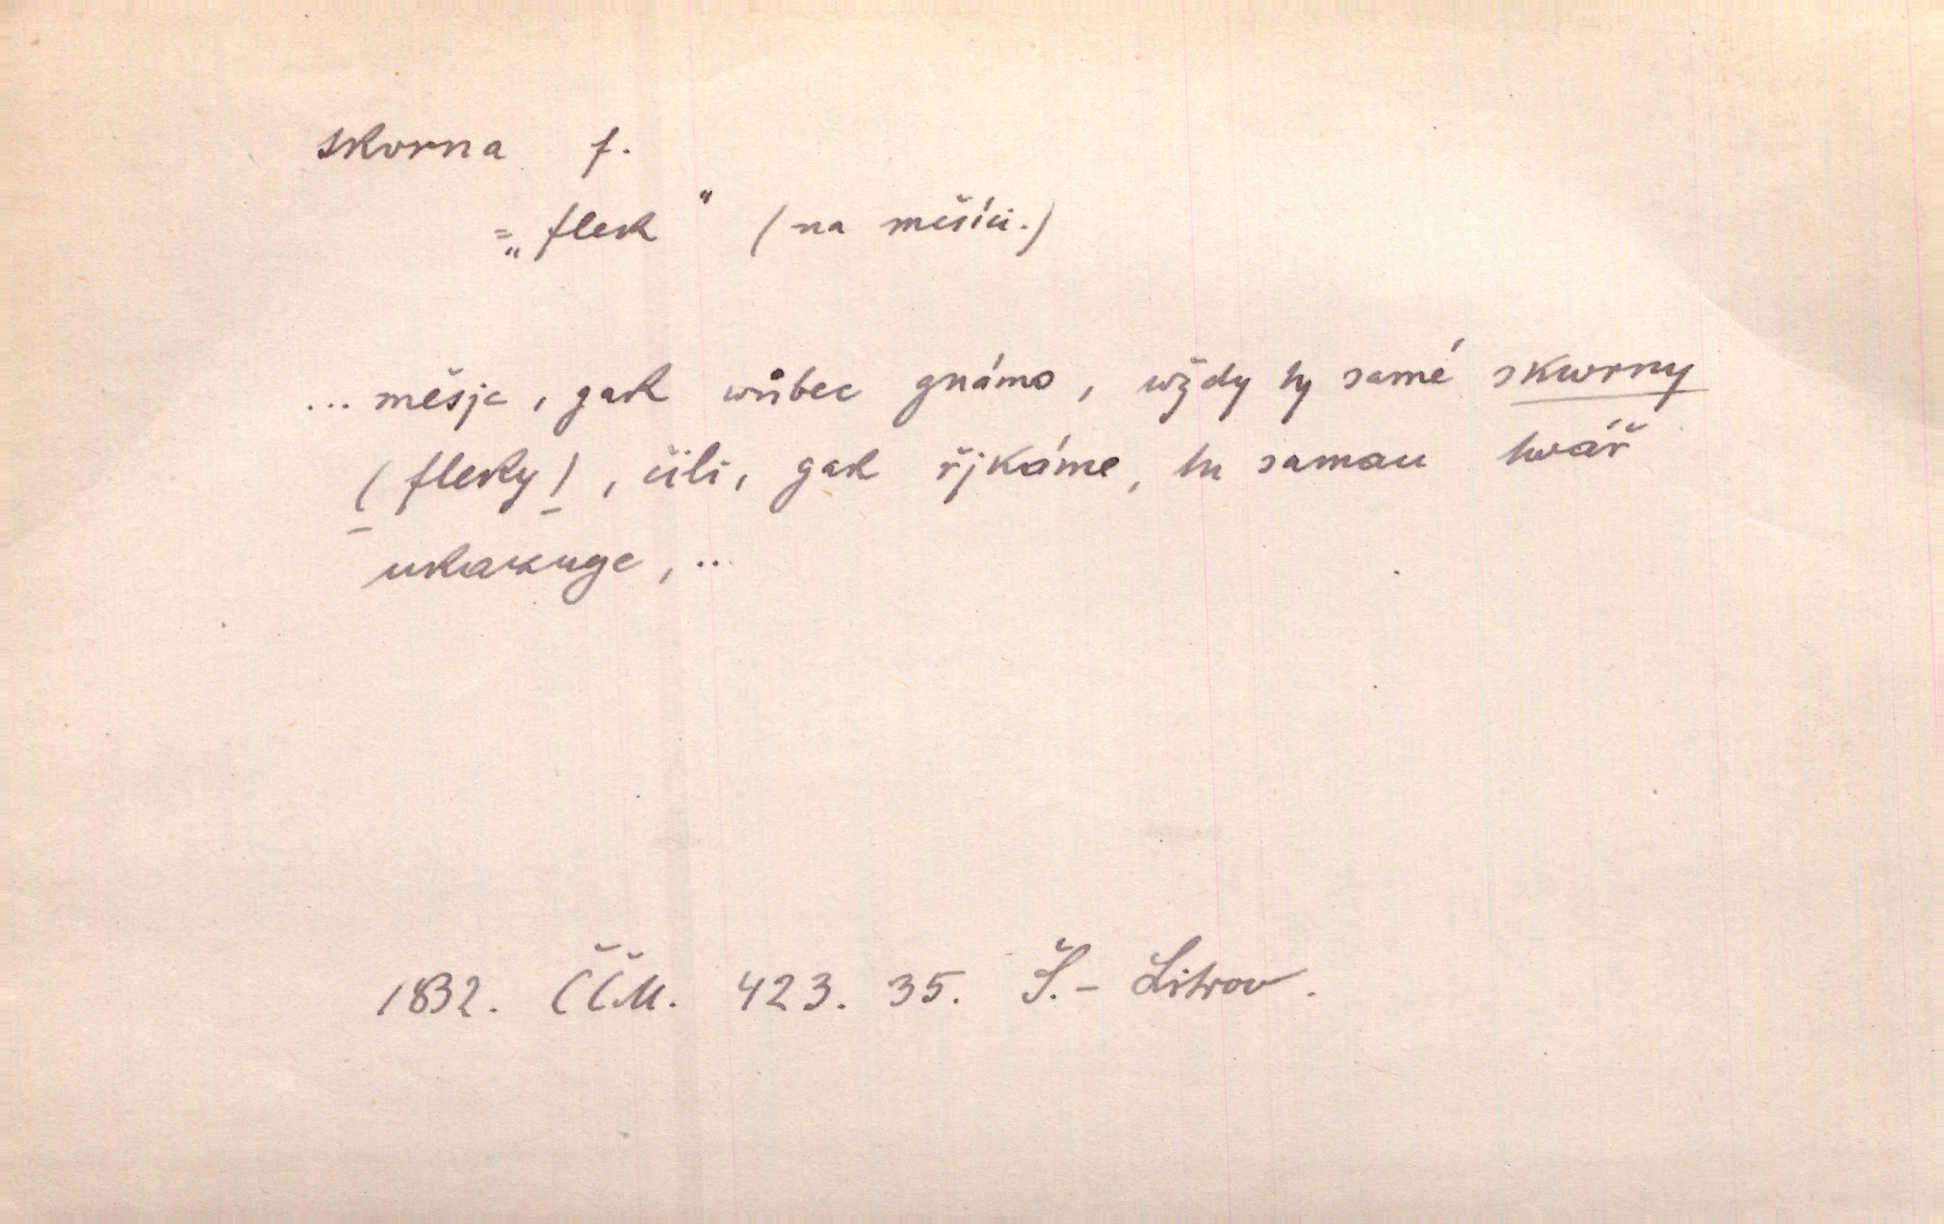 skvrna f.
= „flek“ (na měsíci.)
... měsjc, gak wůbec gnámo, wždy ty samé skwrny
(fleky), čili, gak řjkáme, tu samau twář
ukazuge, ...
1832. ČČM. 423. 35. Š.- Litrov.